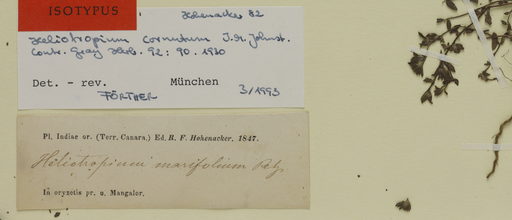 ISOTYPUS
Hohenacker 82
Heliotropium cornutum I.M. Johnst.
Contr. Gray Herb. 92: 90. 1930
Det. - rev. München
FÖRTHER 3/1993
Pl. Indiae or. (Terr. Canara.) Ed. R. F. Hohenacker. 1847.
Heliotropium marifolium Retz.
In oryzetis pr. u. Mangalor.